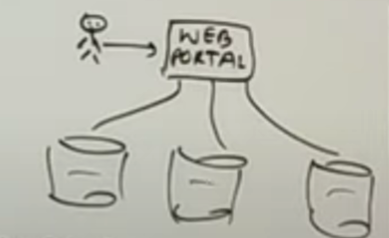 WEB
PORTAL